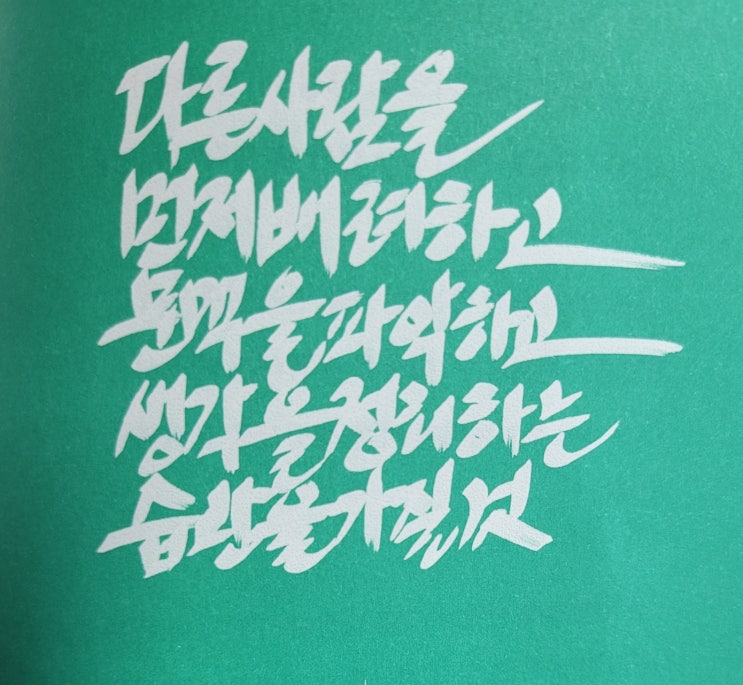 다른사람을
먼저배려하고
문맥을파악하고
생각을정리하는
습관을가질것